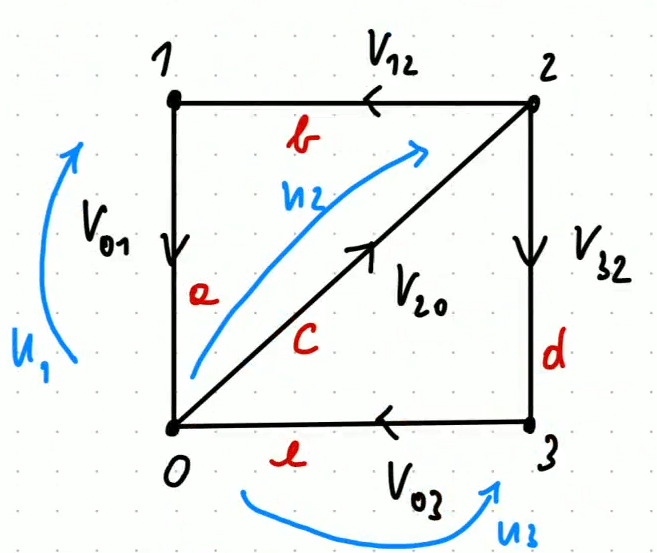 1
V12
2
b
u2
V01
V32
a
V20
c
d
u1
0
e
V03
3
u3